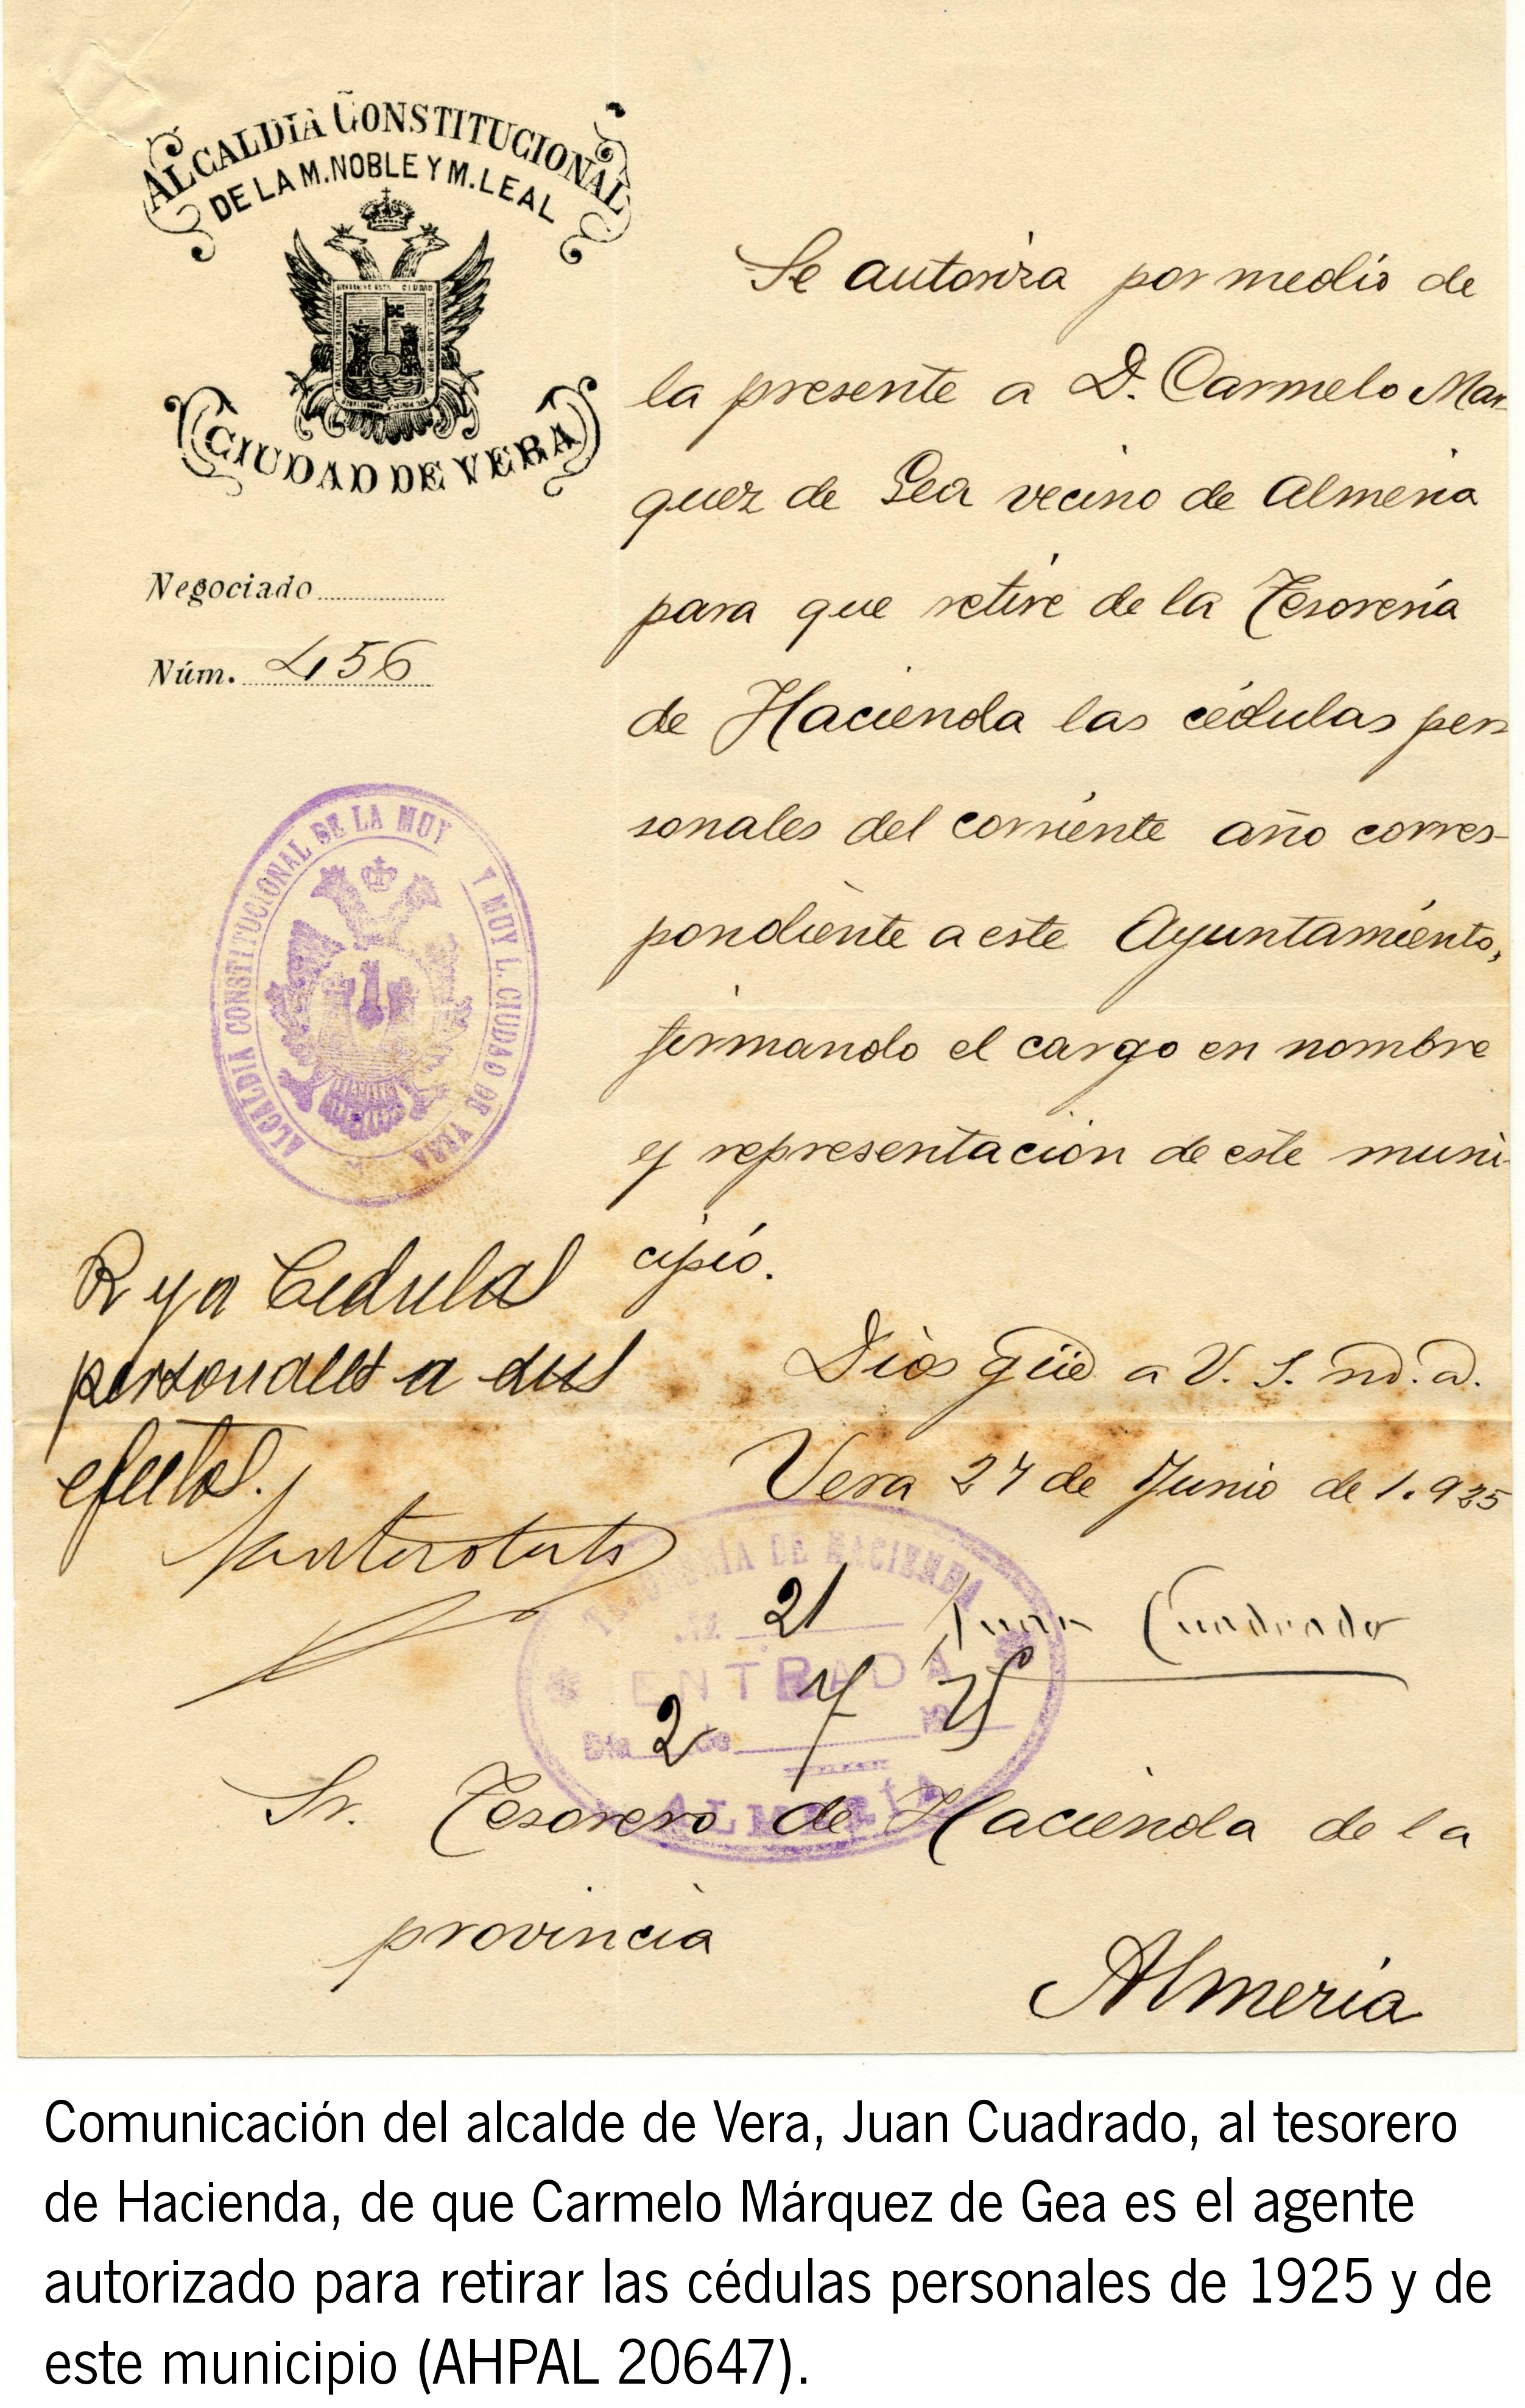 ALCALDIA CONSTITUCIONAL
DE LA M. NOBLE Y M. LEAL
CIUDAD DE VERA
Negociado
Núm. 456
Se autoriza por medio de
la presente a D. Carmelo Mar-
quez de Gea vecino de Almeria
para que retire de la Tesorería
de Hacienda las cédulas per
sonales del corriente año corres-
pondiente a este Ayuntamiento,
firmando el cargo en nombre
y representacion de este muni-
cipio.
Dios güe a V. S. m. a.
Vera 27 de Junio de 1.925
Juan Cuadrado
ALCALDIA CONSTITUCIONAL DE LA MUY
Y MUY L. CIUDAD DE VERA
R y a Cedulas
personales a sus
efectos.
TESORERIA DE HACIENDA
21
ENTRADA
Dia 2 de 7 19 25
ALMERIA
Sr. Tesorero de Hacienda de la
provincia
Almeria
Comunicación del alcalde de Vera, Juan Cuadrado, al tesorero
de Hacienda, de que Carmelo Márquez de Gea es el agente
autorizado para retirar las cédulas personales de 1925 y de
este municipio (AHPAL 20647).